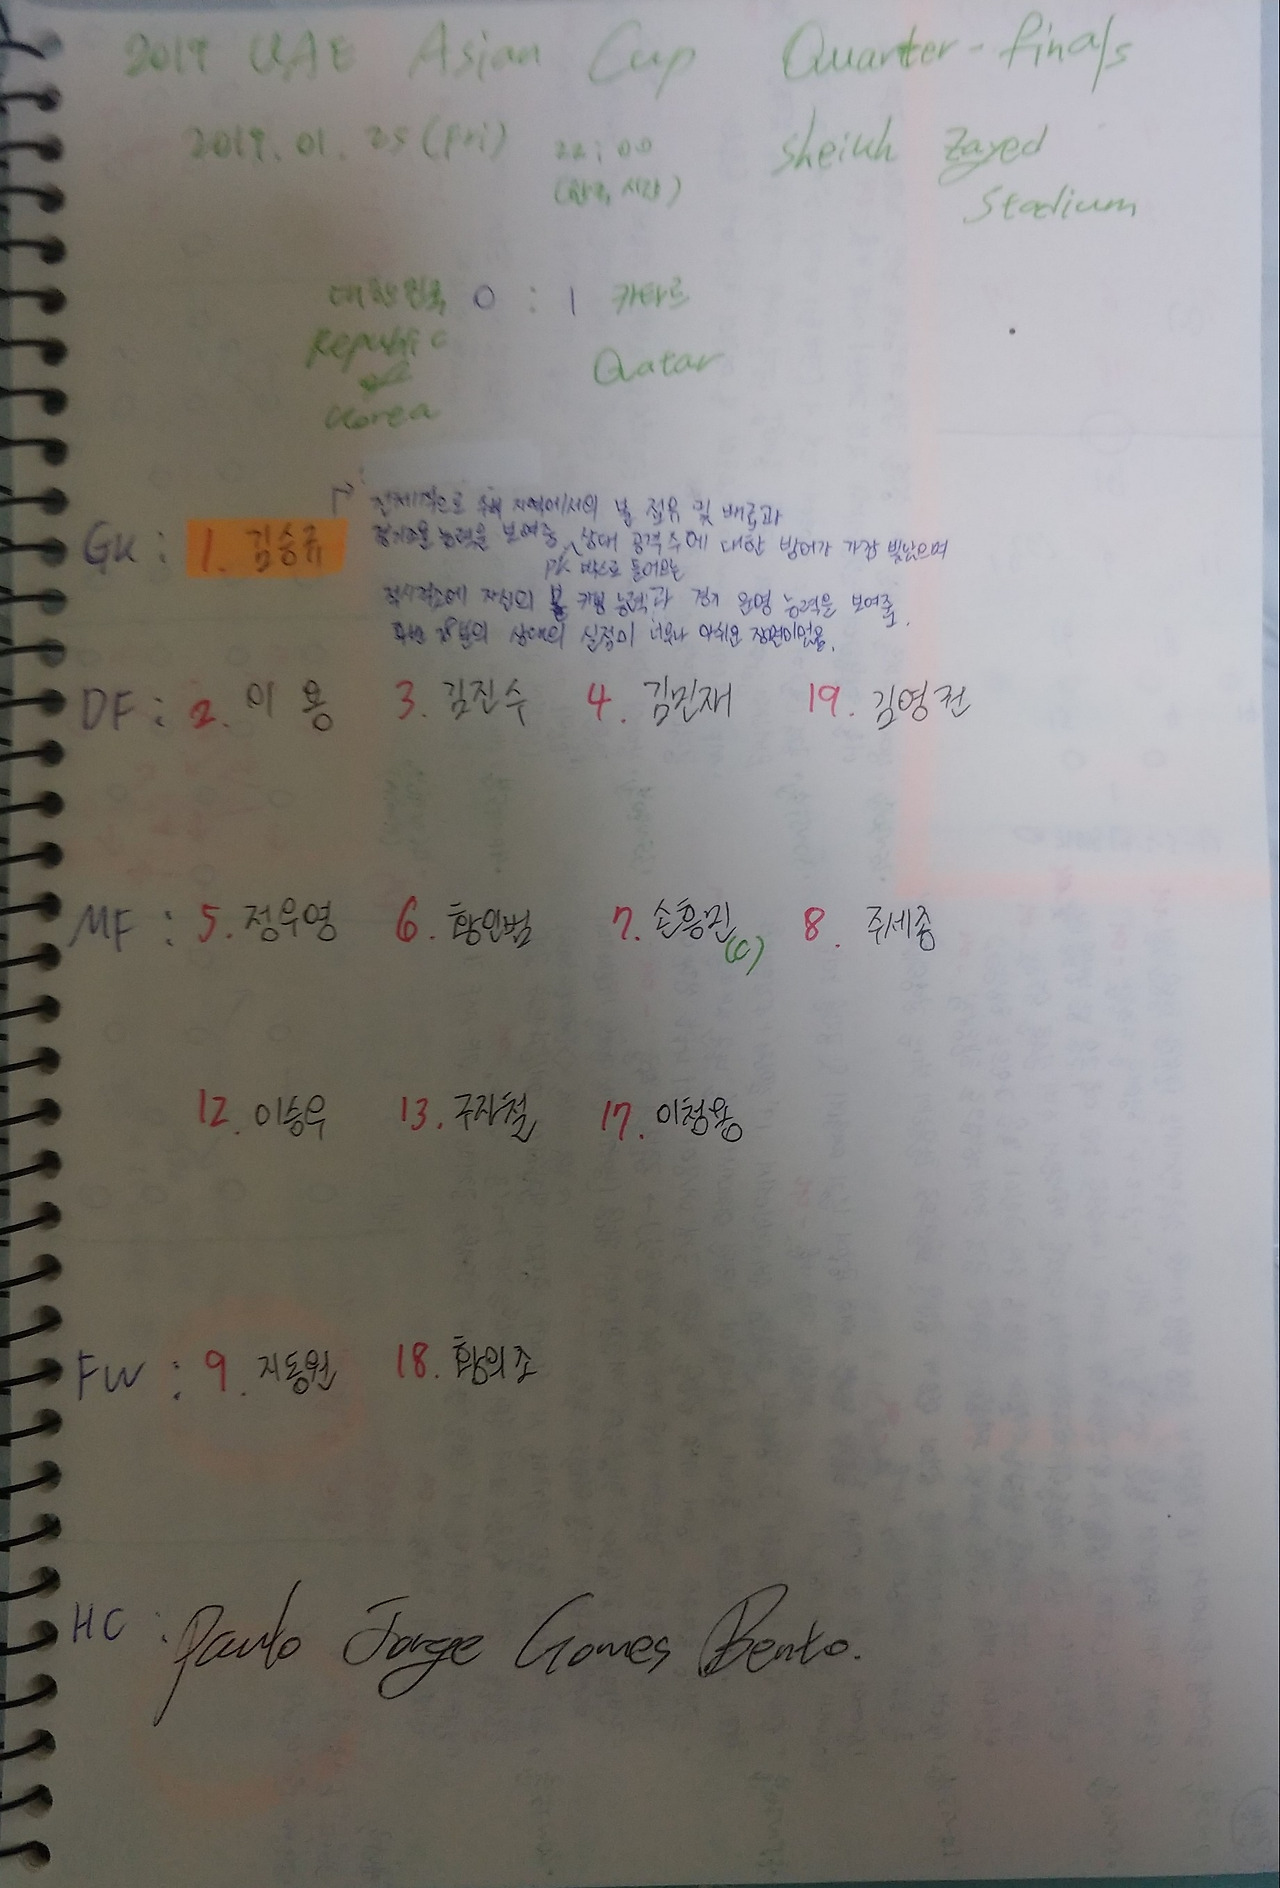 2019 UAE Asian Cup Quarter-finals
2019. 01. 25 (Fri) 22:00 Sheikh Zayed
(한국 시간) Stadium
대한민국 0 : 1 카타르
Republic Qatar
of
Korea
전체적으로 수비 지역에서의 볼 점유 및 배급과
GK : 1. 김승규 경기조율 능력을 보여줌 상대 공격수에 대한 방어가 가장 빛났으며
PK 박스로 들어오는
적시적소에 자신의 볼 키핑 능력과 경기 운영 능력을 보여줌.
후반 78분의 상대의 실점이 너무나 아쉬운 장면이었음.
DF : 2. 이 용 3. 김진수 4. 김민재 19. 김영권
MF : 5. 정우영 6. 황인범 7. 손흥민 (C) 8. 주세종
12. 이승우 13. 구자철 17. 이청용
FW : 9. 지동원 18. 황의조
HC : Paulo Jorge Gomes Bento.